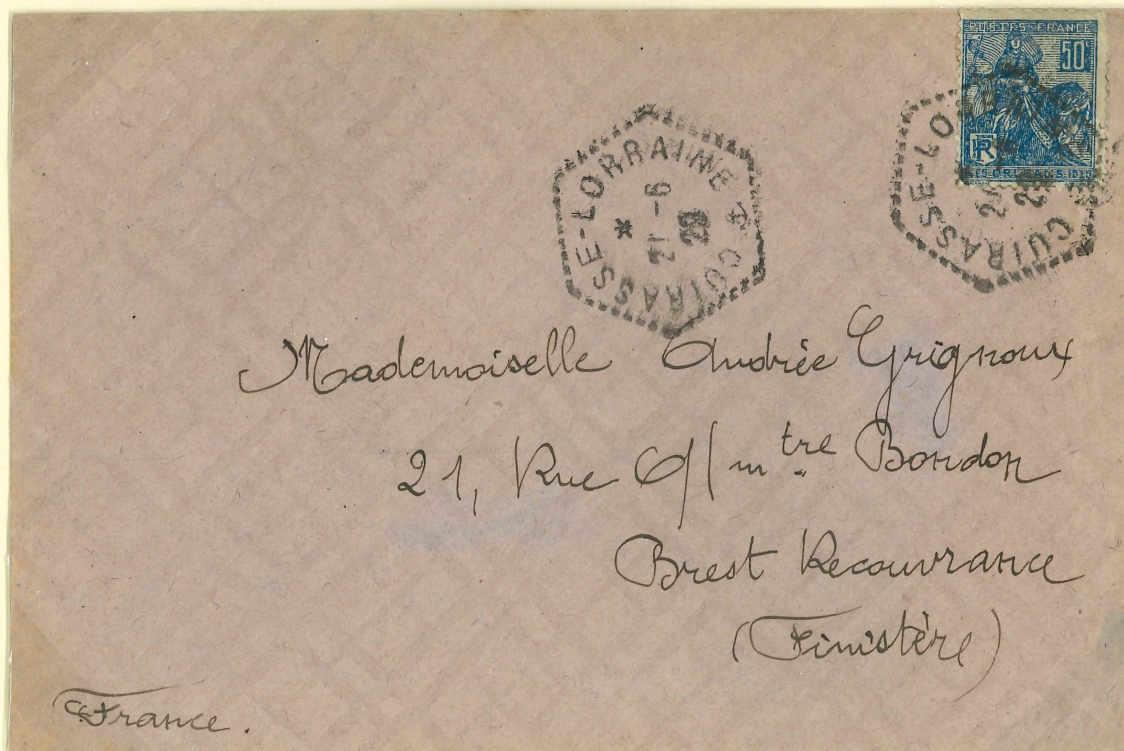 POSTES FRANCE
50c
RF
ORLEANS 1929
CUIRASSE-LORRAINE
21-6
29
CUIRASSE-LO
Mademoiselle Andrée Grignoux
21, Rue Cl/ mtre Bondon
Brest Recouvrance
(Finistère)
France.